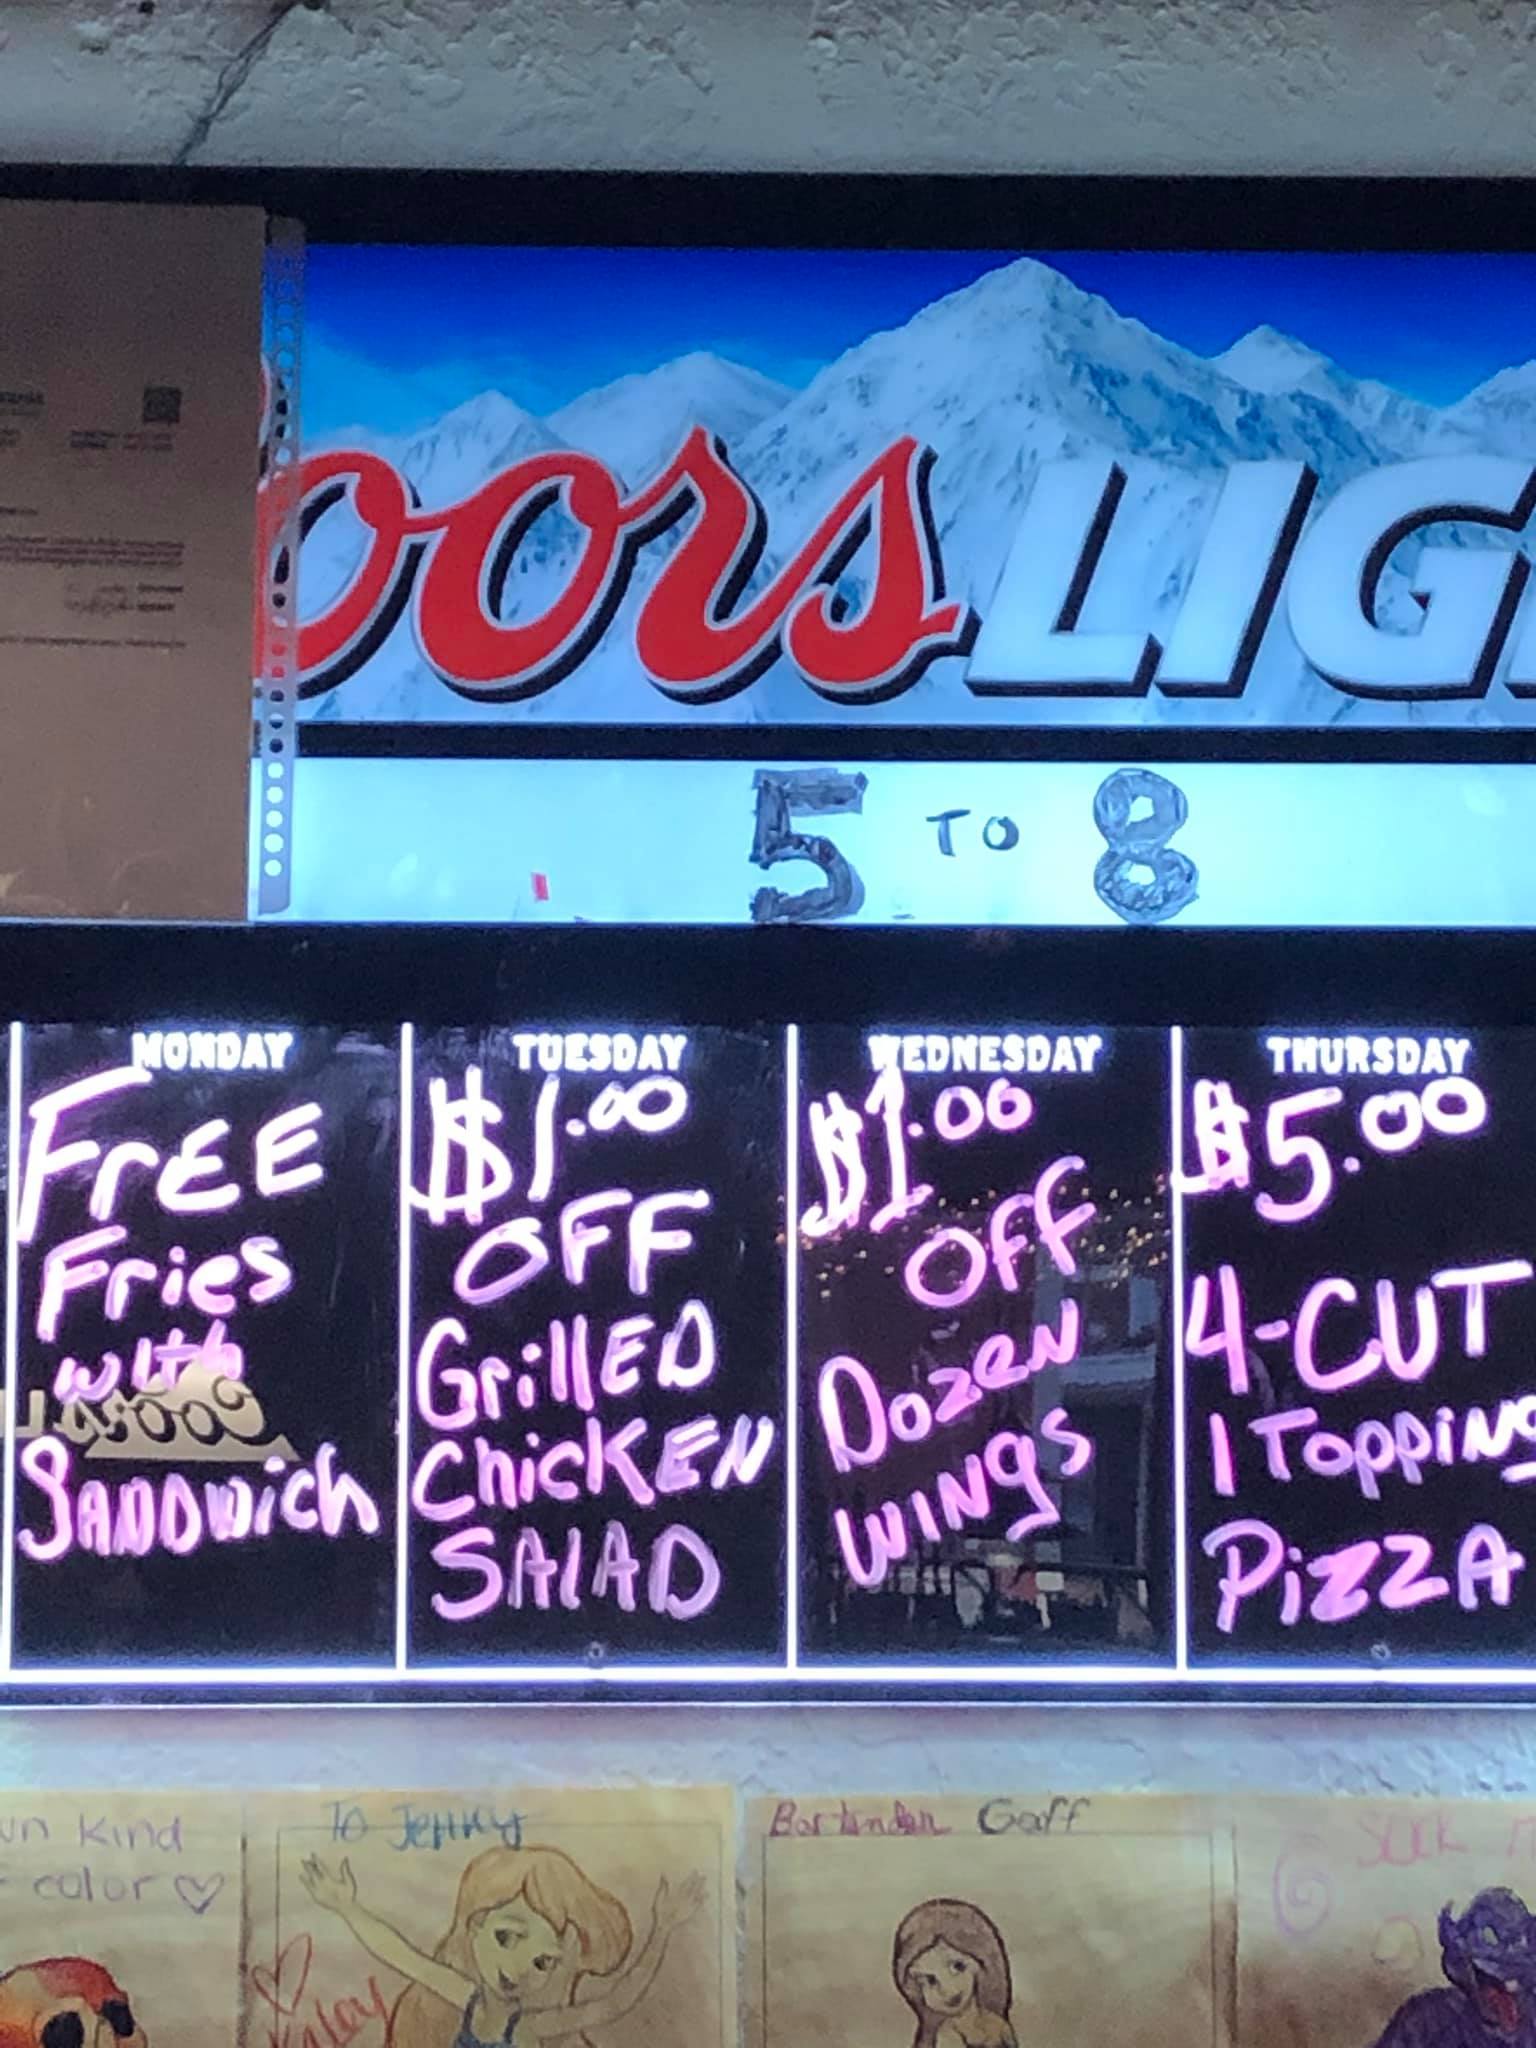 Coors LIG
5 TO 8
MONDAY
FrEE
Fries
with
SANDWich
TUESDAY
$1.00
OFF
GrillED
ChicKEN
SAlAD
WEDNESDAY
$1.00
OFF
DozeN
WINgS
THURSDAY
$5.00
4-CUT
1 ToppiNg
PiZZA
Kind
color ♡
To Jenny
Bartender Gaff